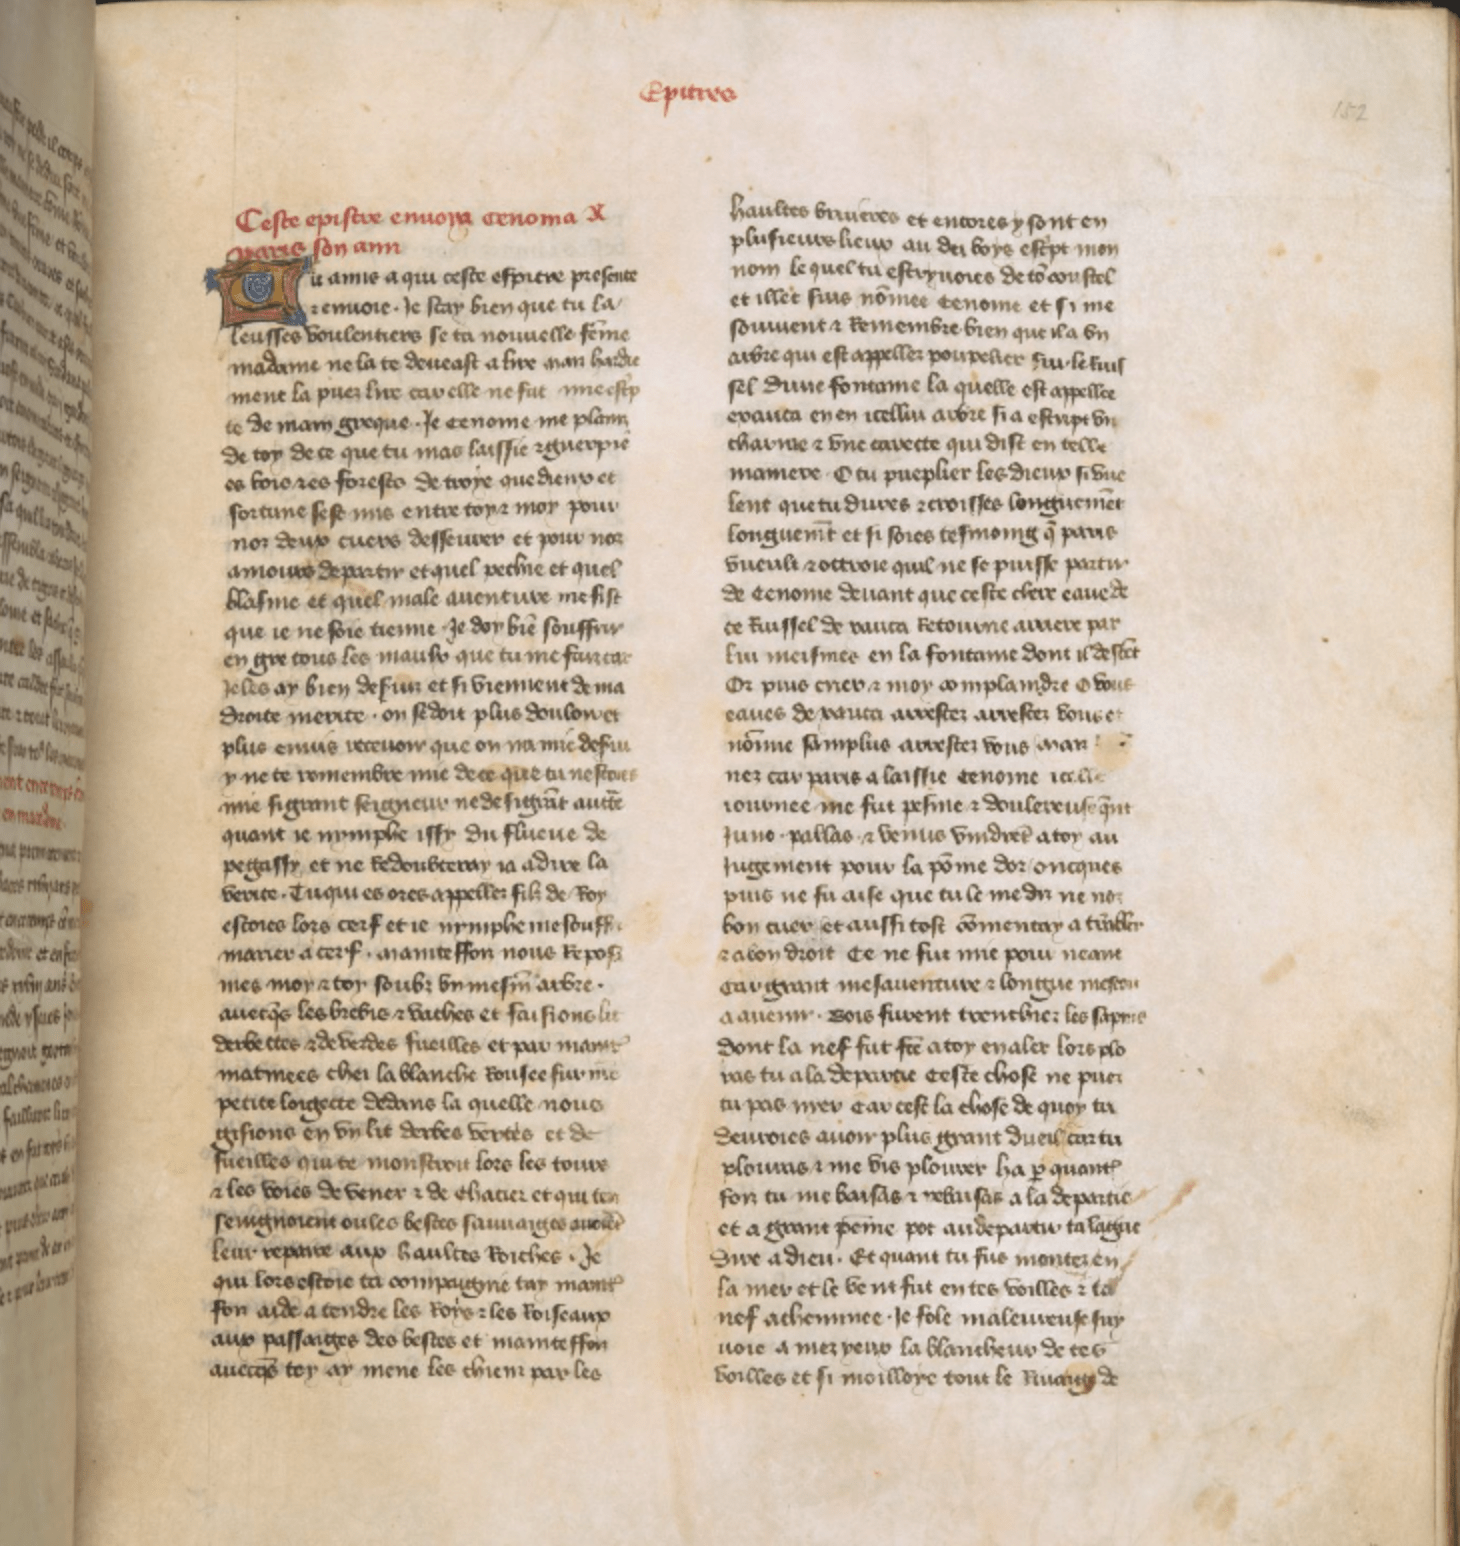 Epitres
152
Ceste epistre enuoya cenoma a
paris son ami
u amis a qui ceste espitre presente
renuoie. Je scay bien que tu la
leusses voulentiers se ta nouuelle feme
madame ne la te deueast a lire man hardie
ment la puez lire car elle ne fut mie escrip
te de main greque. Je cenome me plaing
de toy de ce que tu mas laissie et guerpie
es bois et es forests de troye que dieux et
fortune se sest mis entre toy et moy pour
noz deux cuers desseurer et pour noz
amours departir et quel pechie et quel
blasme et quel male auenture me fist
que ie ne soie tienne. Je doy bien souffrir
en gre tous les maulx que tu me faiz car
Je les ay bien deserui et si viennent de ma
droite merite. on se doit plus douloir et
plus enuis receuoir que on na mie deserui
y ne te remembre mie de ce que tu nestoies
mie si grant seigneur ne de si grant aucte
quant ie nymphe issy du flueue de
pegassy et ne redoubteray ia a dire la
verite. Tu qui es ores appellez filz de Roy
estoies lors cerf et ie nymphe me souffri
marier a cerf. mainteffon nous repos
mes moy et toy soubz vn mesme arbre.
auecques les brebis et vaches et faisions lit
derbettes et de verdes fueilles et par maint
matinees chei la blanche rousee sur une
petite loigette dedans la quelle nous
gisions en vn lit derbes vertes et de
fueilles qui te monstroit lors les tours
et les voies de vener et de chacier et qui ten
seingnoient ou les bestes sauuaiges auoient
leur repaire aux haultes Roiches. Je
qui lors estoie ta compaignie tay maint
fon aide a tendre les Roys et les Roiseaux
aux passaiges des bestes et mainteffon
auecques toy ay mene les chiens par les
haultes bruieres et encores y sont en
plusieurs lieux au du boys escript mon
nom le quel tu escryuoies de ton coustel
et illec suis nommee cenome et si me
souuient et Remembre bien que il a vn
arbre qui est appellez poupelier sur le ruis
sel dune fontaine la quelle est appellee
exauca en en icellui arbre si a escript vn
charme et vne carecte qui dist en telle
maniere. O tu pueplier les dieux si vue
lent que tu dures et croisses longuement
longuement et si soies tesmoing que paris
vueult et octroie quil ne se puisse partir
de cenome deuant que ceste clere eaue de
ce Ruissel de xauca Retourne arriere par
lui meismes en la fontaine dont il descent
Or puis crier et moy complaindre O vous
eaues de xauca arrestez arrestez vous et
nomme samplus arrestez vous
nez car paris a laissie cenome icelle
iournee me fut pesme et doulereuse quant
Juno. pallas. et venus vindrent a toy au
Jugement pour la pomme dor oncques
puis ne fu aise que tu le me dis ne noz
bon cuer et aussi tost commencay a trembler
et a bon droit Ce ne fut mie pour neant
Car grant mesauenture et longue mescon
a auenir. Bois furent trenchiez les sapins
dont la nef fut faite a toy en aler lors plo
ras tu a la departie Ceste chose ne puez
tu pas nyer Car cest la chose de quoy tu
deuroies auoir plus grant dueil car tu
plouras et me vis plourer ha par quante
fon tu me baisas et rebaisas a la departie
et a grant peine pot au departir ta langue
dire a dieu. Et quant tu fus montez en
la mer et le vent fut en tes voilles et ta
nef acheminee. Je fole maleureuse suy
uoie a mez yeux la blancheur de tes
voilles et si moilloye tout le Riuaige de